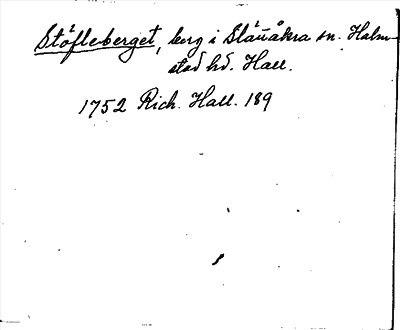 Stöfleberget, berg i Slättåkra sn. Halm-
stad hd. Hall.
1752 Rich. Hall. 189